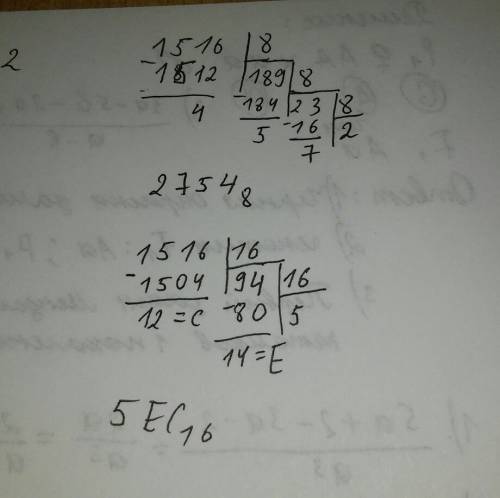 2
1516 | 8
- 1512 | 189 | 8
4 - 184 | 23 | 8
5 - 16 | 2
7
2754₈
1516 | 16
- 1504 | 94 | 16
12 = C - 80 | 5
14 = E
5EC₁₆